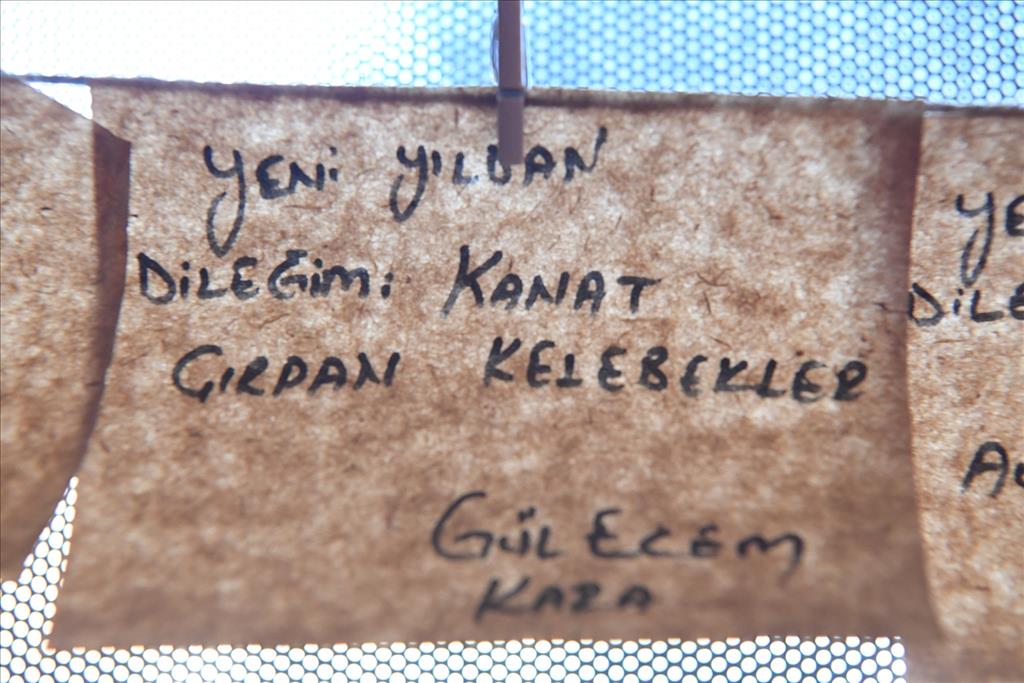 YENİ YILDAN
DİLEĞİM: KANAT
ÇIRPAN KELEBEKLER
GÜL ECEM
KARA
YE
DİLE